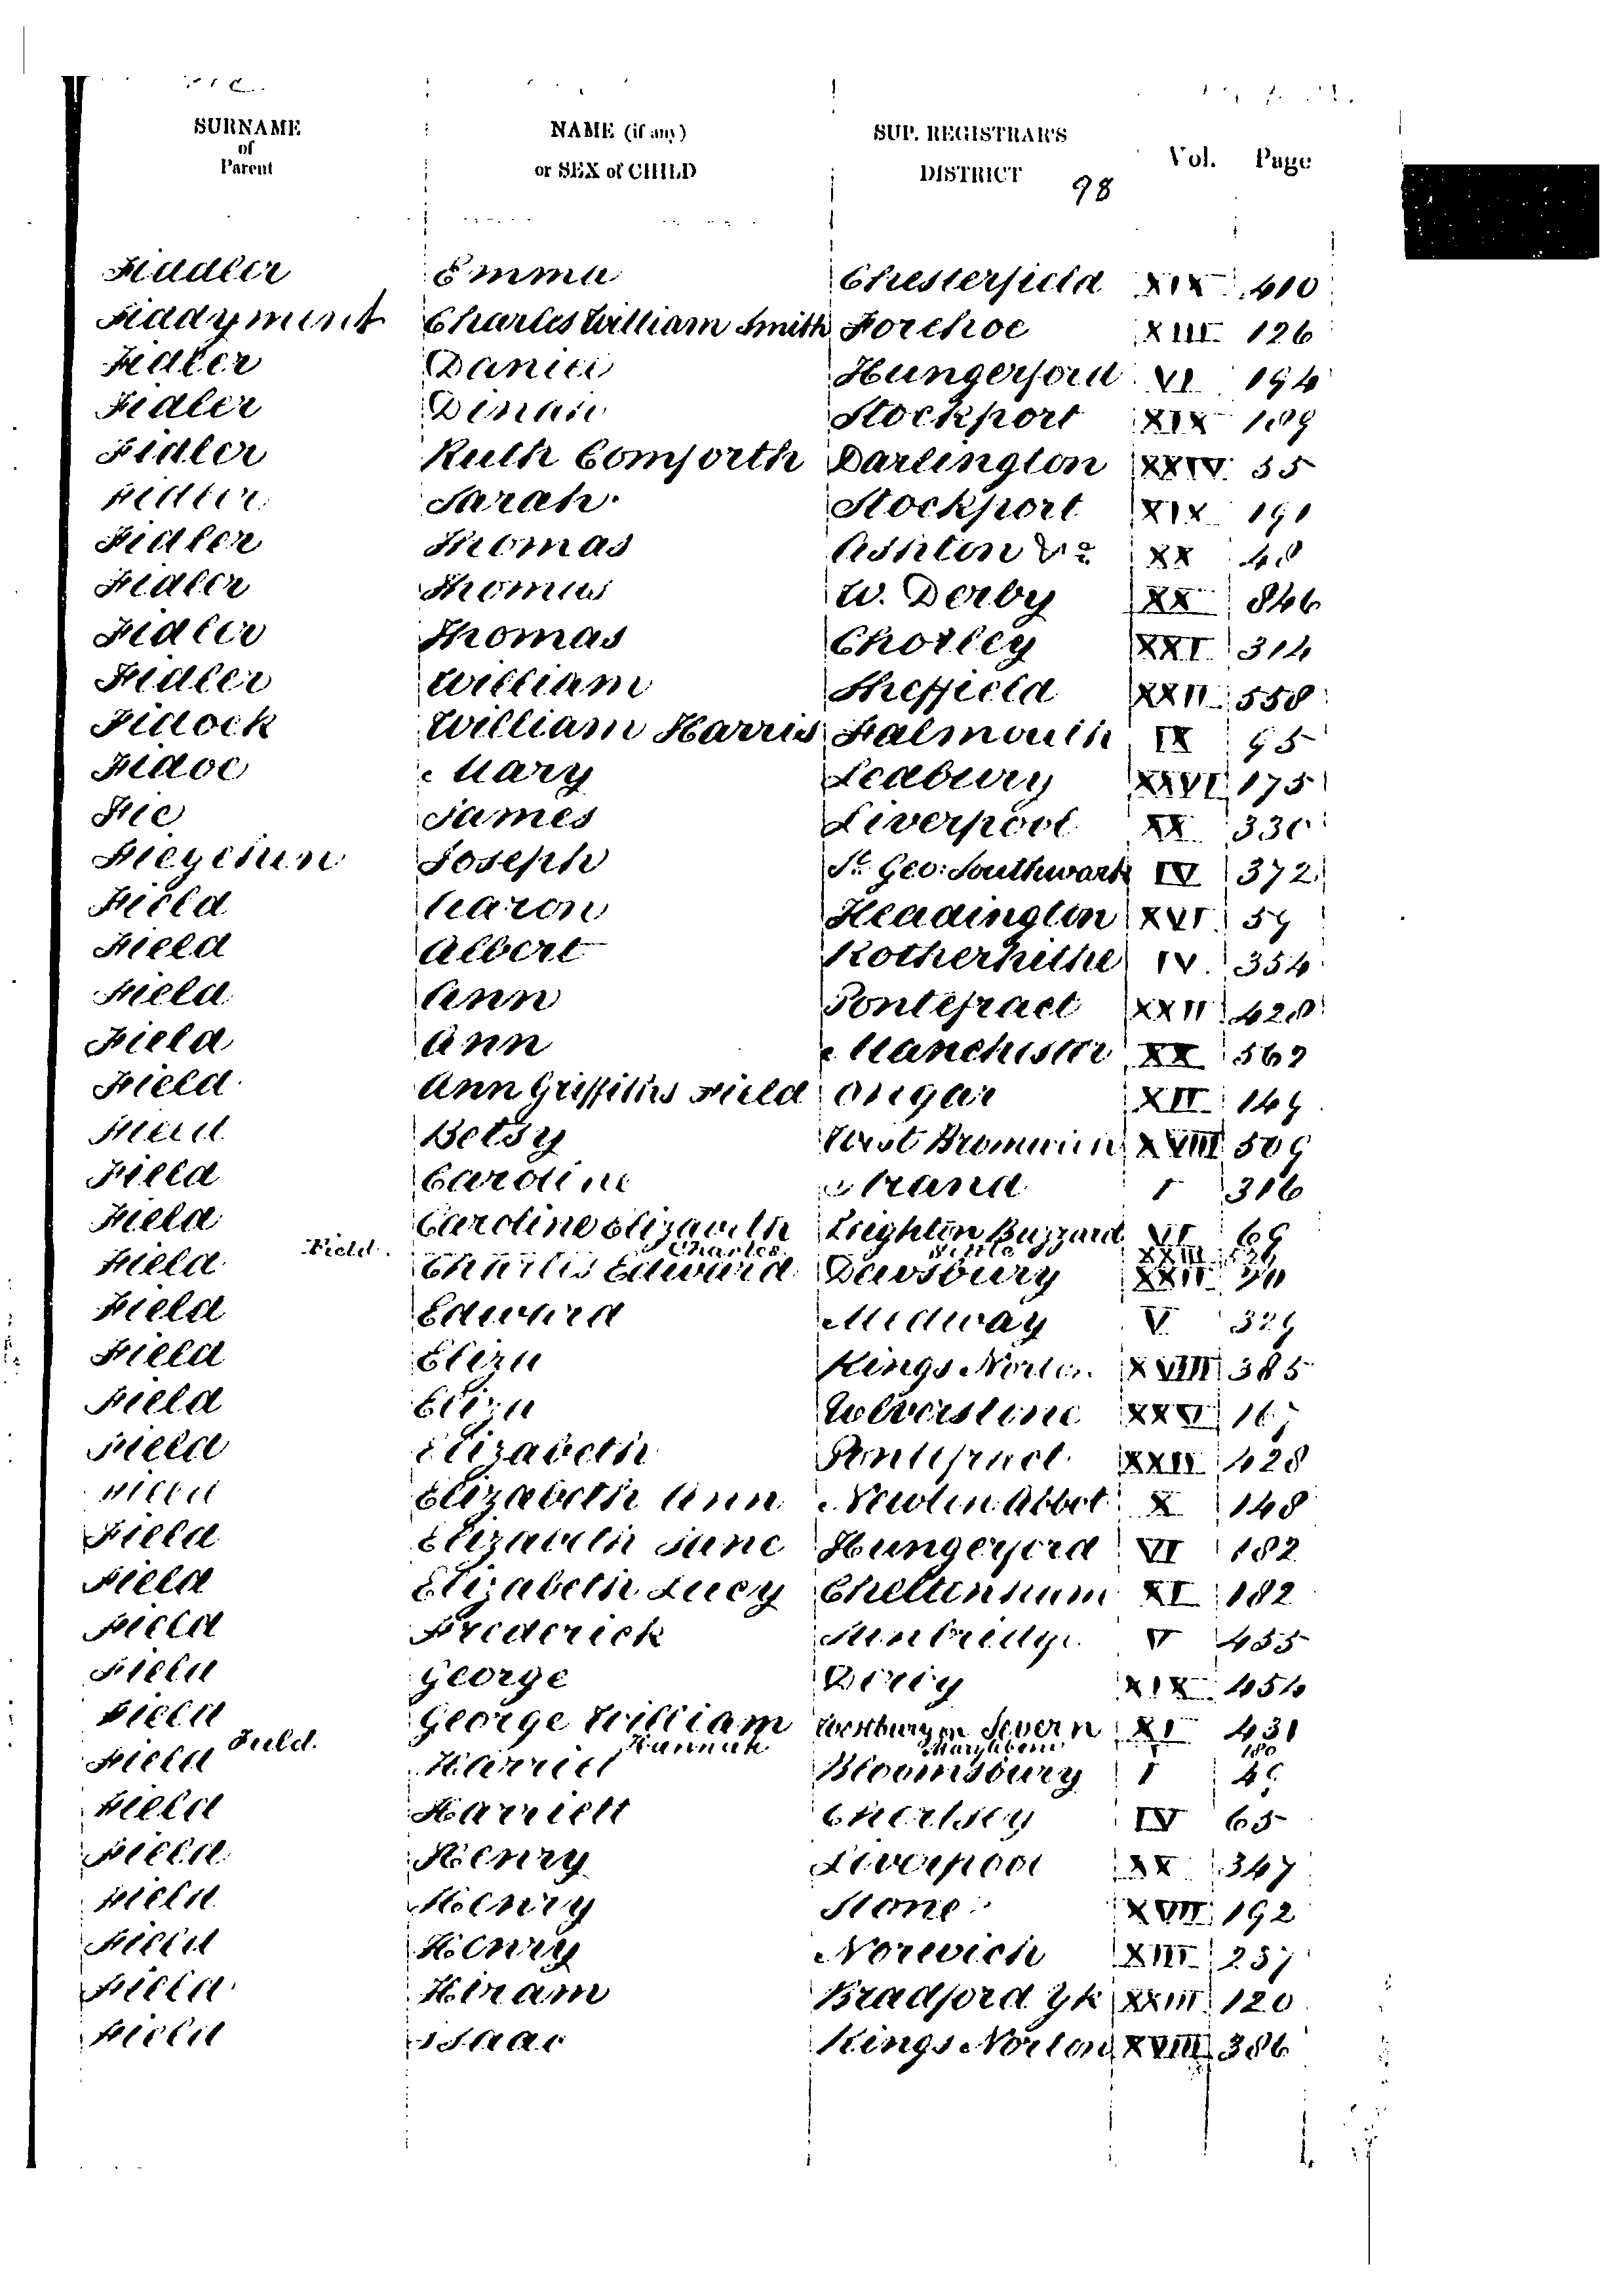 SURNAME of Parent NAME (if any) or SEX of CHILD SUP. REGISTRAR'S DISTRICT Vol. Page
98
Fiddler Emma Chesterfield XIX 410
Fiddyment Charles William Smith Forehoe XIII 126
Fidler Daniel Hungerford VI 194
Fidler Dinah Stockport XIX 189
Fidler Ruth Comforth Darlington XXIV 55
Fidler Sarah Stockport XIX 191
Fidler Thomas Ashton &c XX 48
Fidler Thomas W. Derby XX 846
Fidler Thomas Chorley XXI 314
Fidler William Sheffield XXII 558
Fidock William Harris Falmouth IX 95
Fidoe Mary Ledbury XXVI 175
Fie James Liverpool XX 330
Joseph St. Geo: Southwark IV 372
Field Aaron Headington XVI 59
Field Albert Rotherhithe IV 354
Field Ann Pontefract XXII 428
Field Ann Manchester XX 562
Field Ann Griffiths Field Ongar XII 149
Field Betsy West Bromwich XVIII 509
Field Caroline Strand I 316
Field Caroline Elizabeth Leighton Buzzard VI 69
Field Charles Settle XXIII
Field Charles Edward Dewsbury XXII
Field Edward Medway V 329
Field Eliza Kings Norton XVIII 385
Field Eliza Ulverstone XXV
Field Elizabeth Pontefract XXII 428
Field Elizabeth Ann Newton Abbot X 148
Field Elizabeth Jane Hungerford VI 182
Field Elizabeth Lucy Cheltenham XI 182
Field Frederick Tunbridge V 455
Field George Derby XIX 454
Field George William Westbury on Severn XI 431
Field Hannah Marylebone I 180
Field Harriet Bloomsbury I
Field Harriett Chertsey IV 65
Field Henry Liverpool XX 347
Field Henry Stone XVII 192
Field Henry Norwich XIII 257
Field Hiram Bradford Yk XXIII 120
Field Isaac Kings Norton XVIII 386